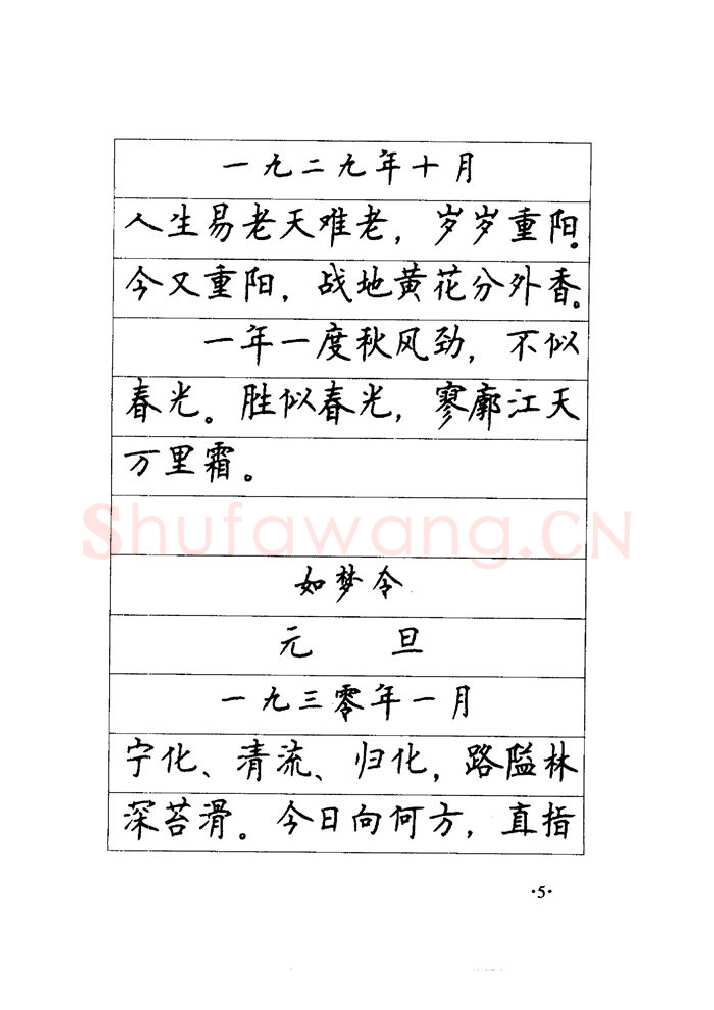 一九二九年十月
人生易老天难老，岁岁重阳。
今又重阳，战地黄花分外香。
一年一度秋风劲，不似
春光。胜似春光，寥廓江天
万里霜。
Shufawang.CN
如梦令
元 旦
一九三零年一月
宁化、清流、归化，路隘林
深苔滑。今日向何方，直指
·5·